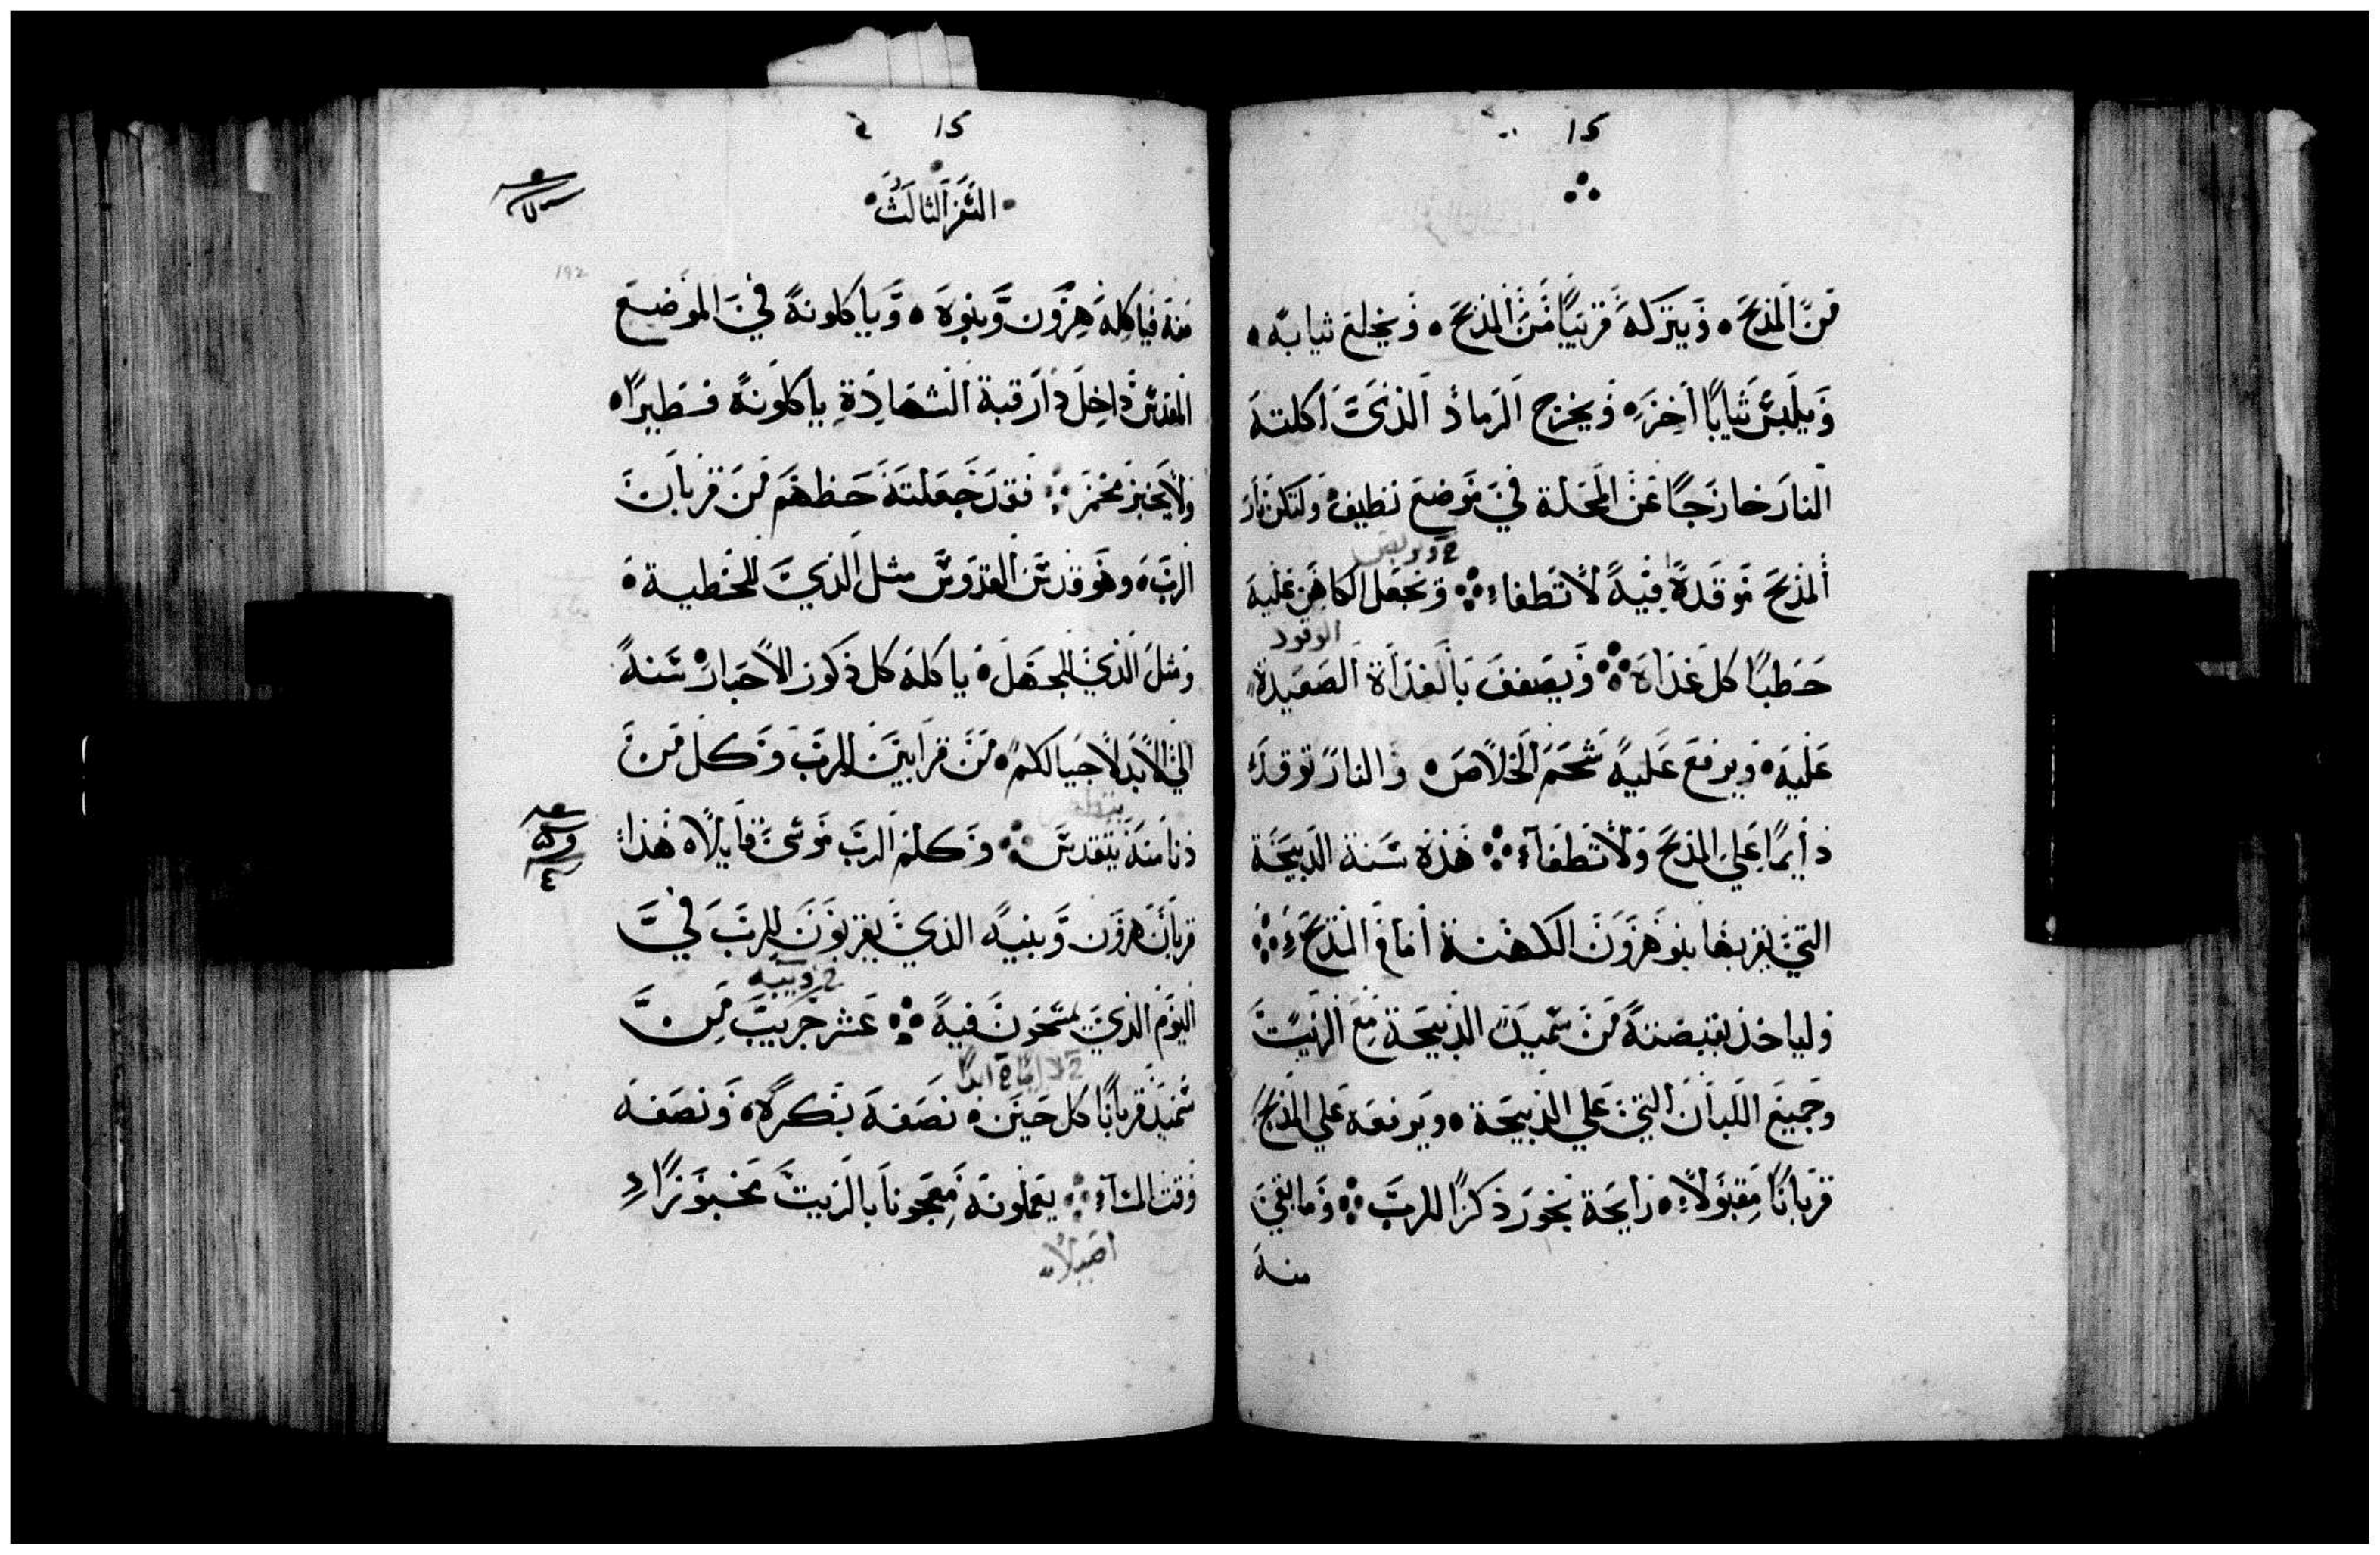 15
من المذبح ويتركه قريبا من المذبح ويخلع ثيابه
ويلبس ثيابا اخره ويخرج الرماد الذي اكلته
النار خارجا عن المحلة في موضع نظيف ولتكن نار
المذبح موقدة فيه لا تطفاء ويجعل الكاهن عليه
الوقود
حطبا كل غداه ويصفف بالغداة الصعيدة
عليه ويرفع عليه شحم الخلاص والنار توقد
دايما علي المذبح ولا تطفاء هذه سنة الذبيحة
التي يقربها بنو هرون الكهنة امام المذبح
ولياخذ بقبضته من سميد الذبيحة مع الزيت
وجميع اللبان التي علي الذبيحة ويرفعه علي المذبح
قربانا مقبولا رايحة بخور ذكرا للرب وما بقي
منه
15
السفر الثالث
192
منه فياكله هرون وبنوه وياكلونه في الموضع
المقدس داخل دار قبة الشهادة ياكلونه فطيرا
ولا يخبز مخمر فقد جعلته حظهم من قربان
الرب وهو قدس القدوس مثل الذي للخطية
ومثل الذي للجهل ياكله كل ذكور الاحبار سنة
الي الابد لاجيالكم من قرابين الرب وكل من
دنا منه يتقدس وكلم الرب موسي قايلا هذا
قربان هرون وبنيه الذي يقربون للرب في
اليوم الذي يمسحون فيه عشر جريب من
سميد قربانا كل حين نصفه بكره ونصفه
وقت المساء يعملونه معجونا بالزيت مخبوزا
اصيلا